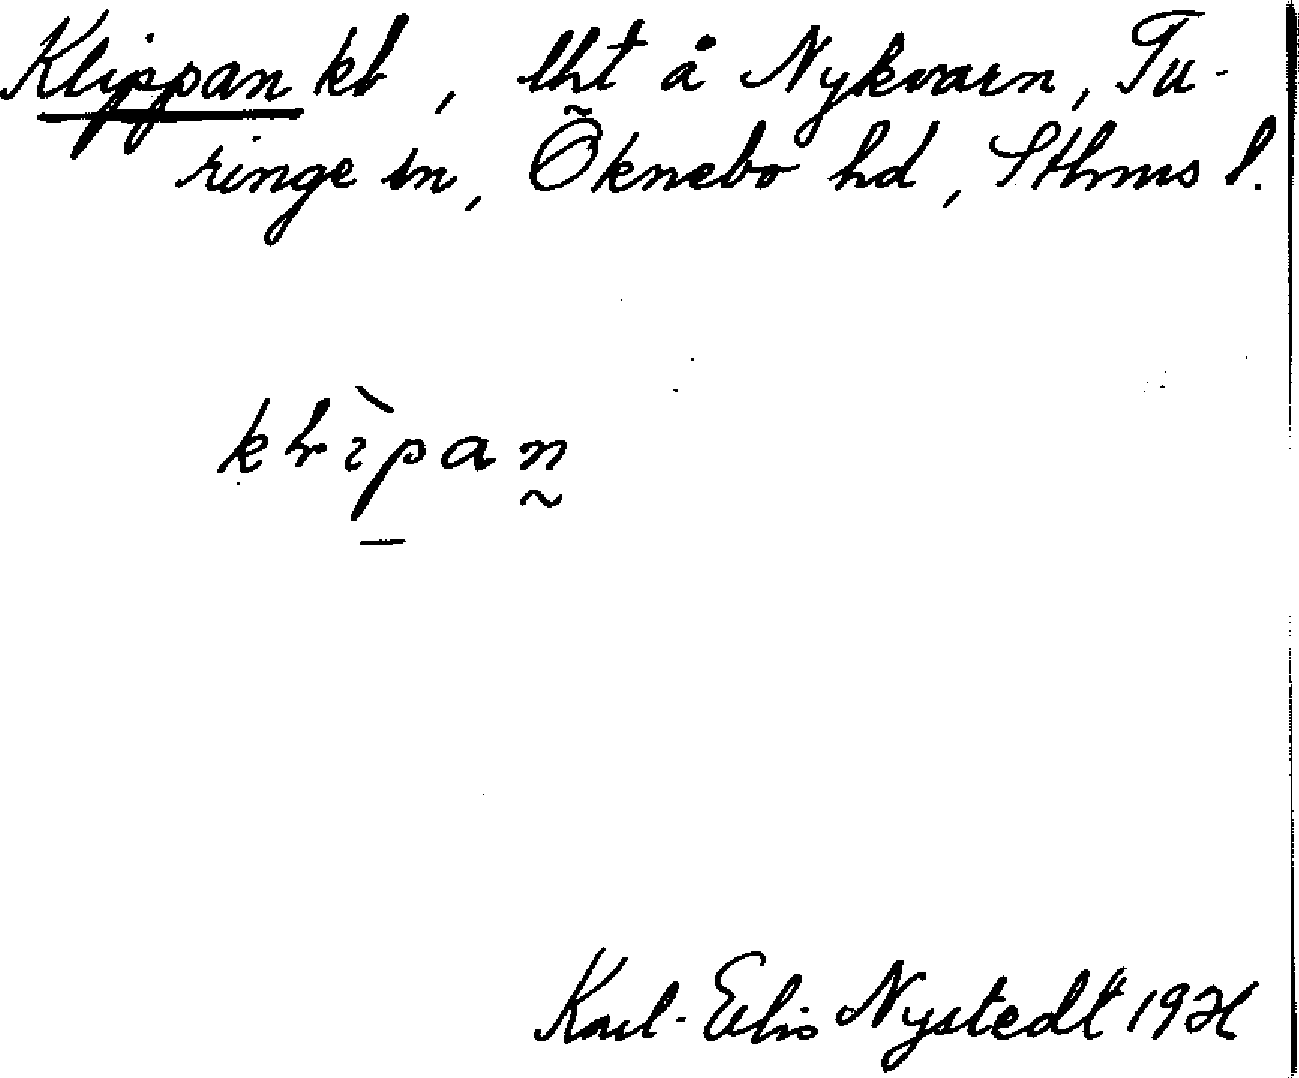 Klippan kt, lht å Nykvarn, Tu-
ringe sn, Öknebo hd, Sthms l.
Karl-Elis Nystedt